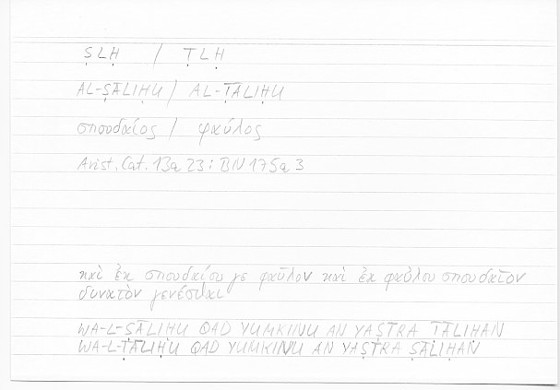 ṢLḤ / ṬLḤ
AL-ṢĀLIḤU / AL-ṬĀLIḤU
σπουδαῖος / φαῦλος
Arist. Cat. 13a 23 : BN 175a 3
καὶ ἐκ σπουδαίου γε φαῦλον καὶ ἐκ φαύλου σπουδαῖον
δυνατὸν γενέσθαι
WA-L-ṢĀLIḤU QAD YUMKINU AN YAṢĪRA ṬĀLIḤAN
WA-L-ṬĀLIḤU QAD YUMKINU AN YAṢĪRA ṢĀLIḤAN